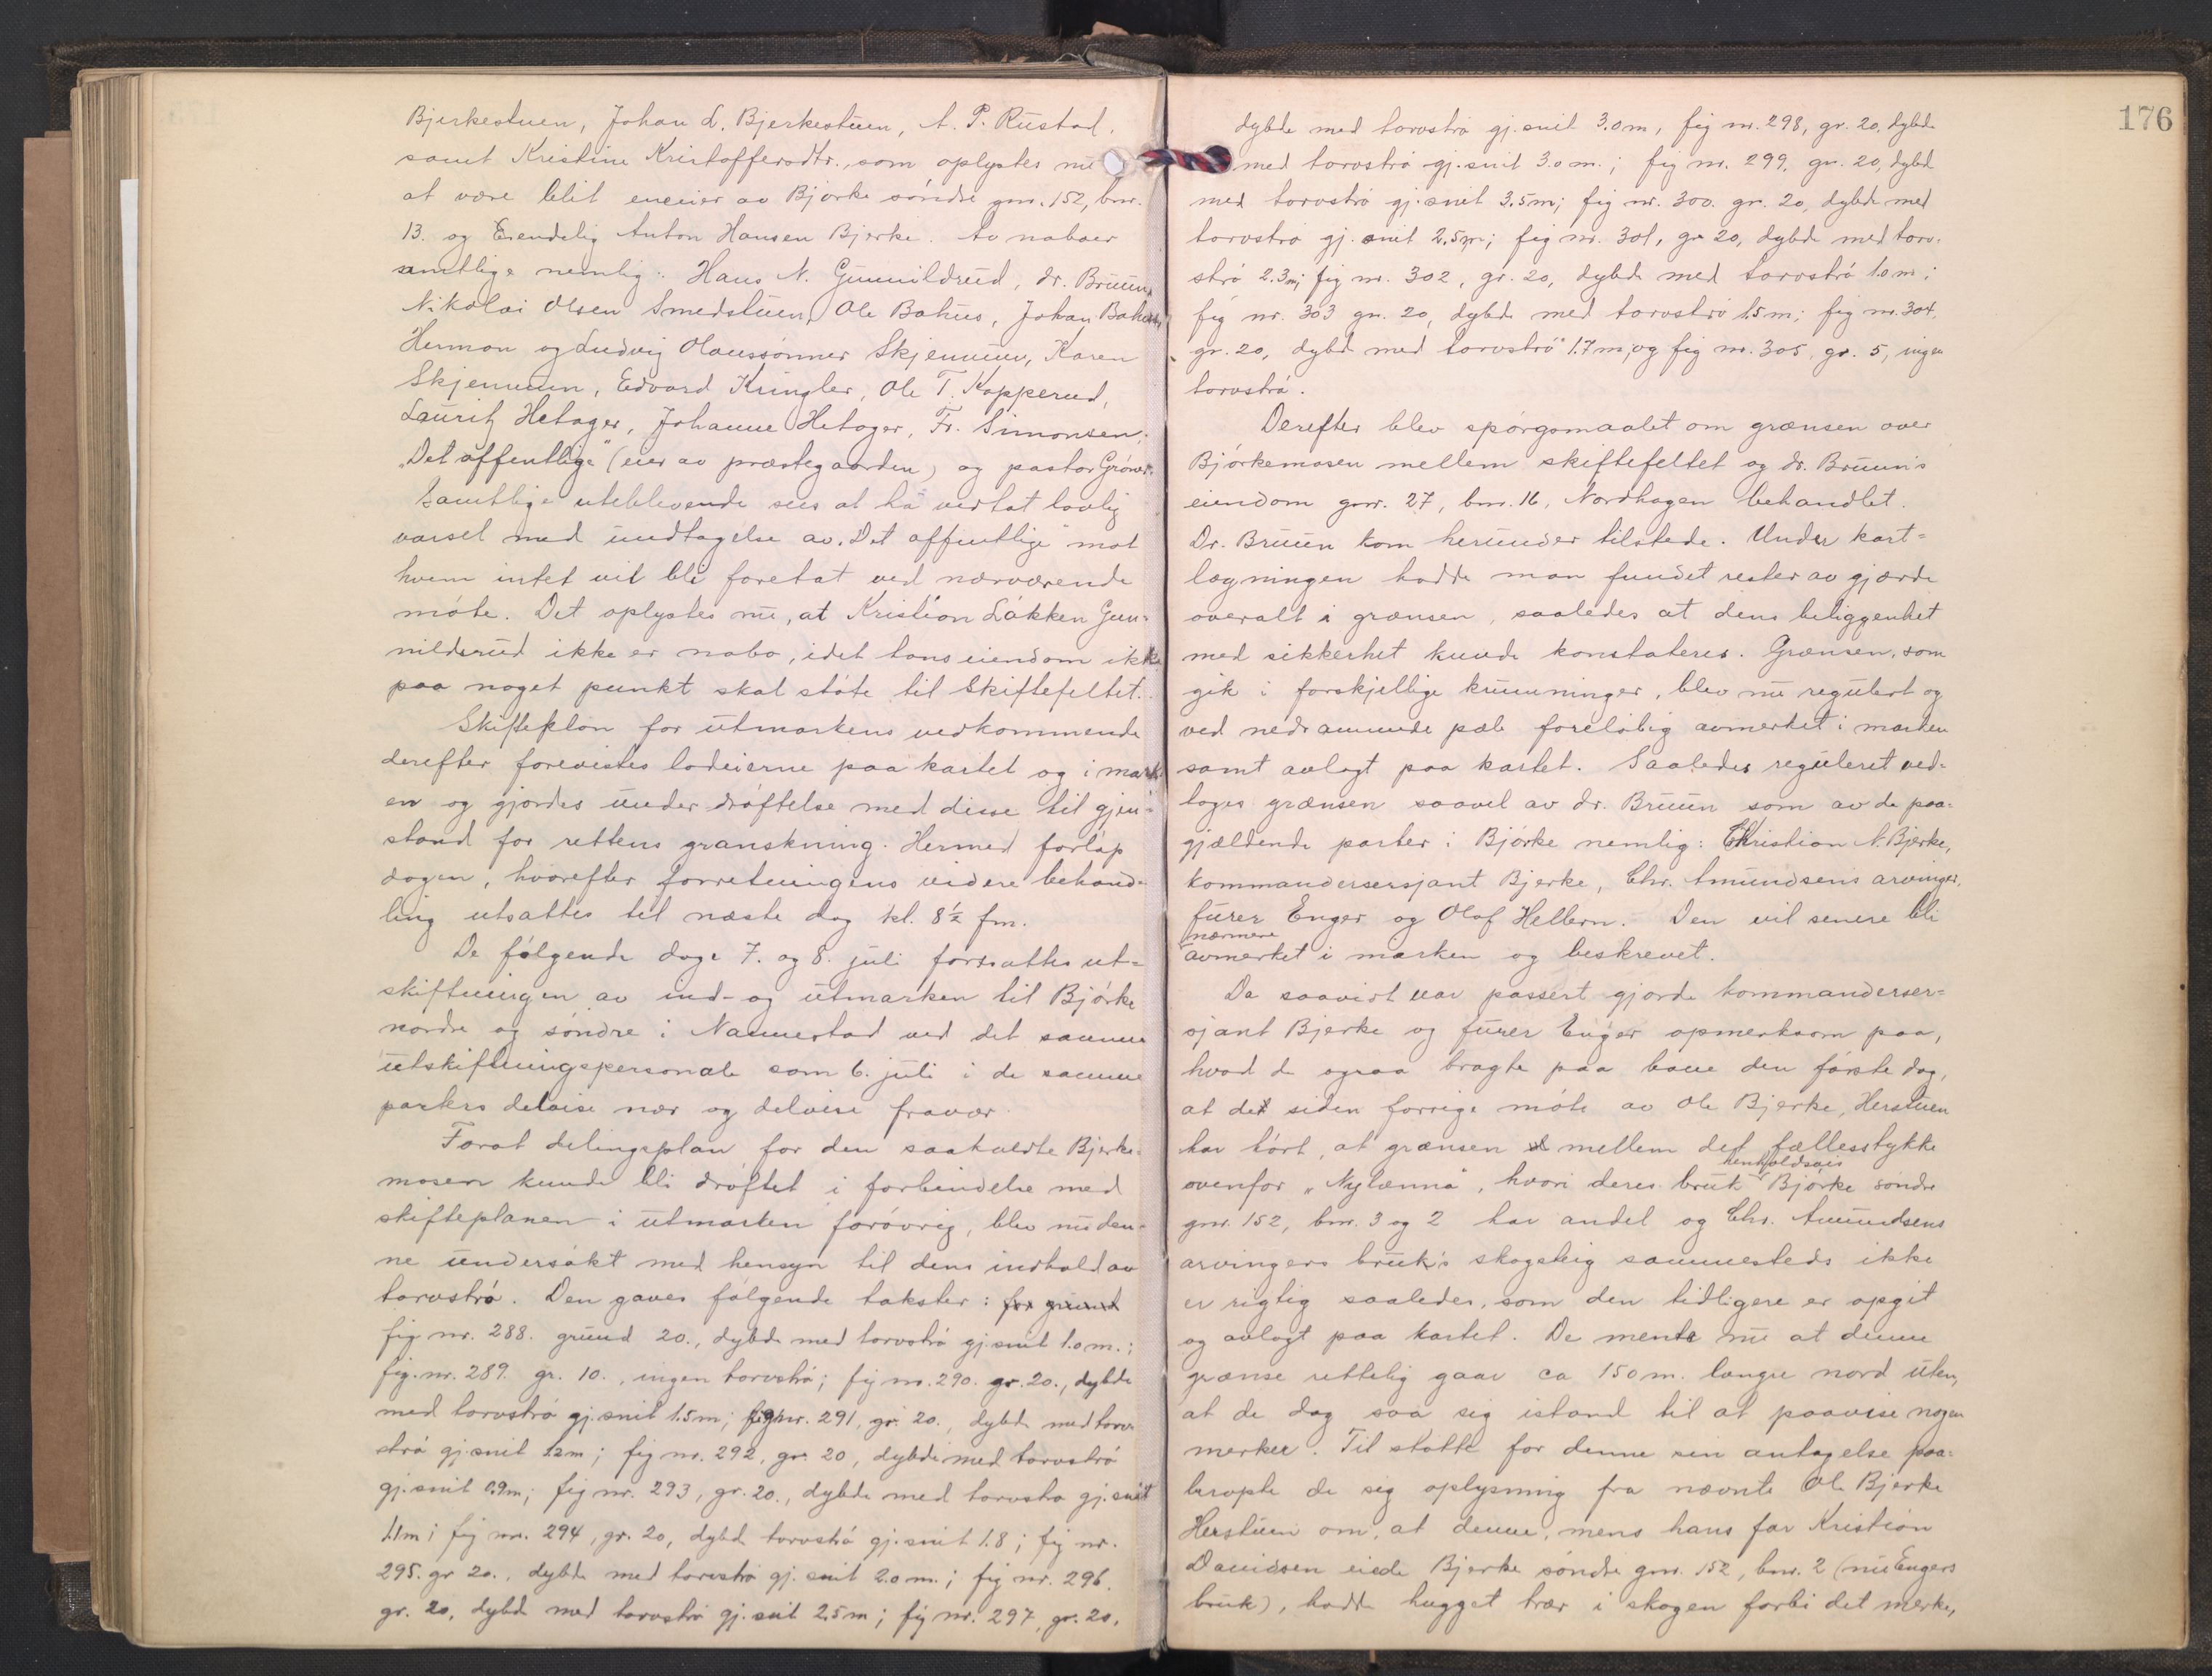 Bjerkestuen, Johan L. Bjerkestuen, A. P. Rustad,
samt Kristine Kristoffersdtr., som oplystes nu
at være blit eneeier av Bjørke søndre gnr. 152, bnr.
13. og Eiendelig Anton Hansen Bjerke. Av naboer
samtlige nemlig: Hans N. Gunnildrud, dr. Bruun,
Nikolai Olsen Smedstuen, Ole Bahus, Johan Bahus,
Herman og Ludvig Olaussønner Skjennum, Karen
Skjennum, Edvard Kringler, Ole T. Kopperud,
Lauritz Hetager, Johanne Hetager, Fr. Simonsen,
„Det offentlige" (eier av præstegaarden) og pastor Grøner.
Samtlige uteblevende sees at ha vedtat lovlig
varsel med undtagelse av „Det offentlige" mot
hvem intet vil bli foretat ved nærværende
møte. Det oplystes nu, at Kristian Løkken Gun-
nildsrud ikke er nabo, idet hans eiendom ikke
paa noget punkt skal støte til Skiftefeltet.
Skifteplan for utmarkens vedkommende
derefter forevistes lodeierne paa kartet og i mark-
en og gjordes under drøftelse med disse til gjen-
stand for rettens granskning. Hermed forløp
dagen, hvorefter forretningens videre behand-
ling utsattes til næste dag kl. 8½ fm.
De følgende dage 7. og 8. juli fortsattes ut-
skiftningen av ind- og utmarken til Bjørke
nordre og søndre i Nannestad ved det samme
utskiftningspersonale som 6. juli i de samme
parters delvise nær og delvise fravær.
Forat delingsplan for den saakaldte Bjerke-
mosen kunde bli drøftet i forbindelse med
skifteplanen i utmarken forøvrig, blev nu den-
ne undersøkt med hensyn til dens indhold av
torvstrø. Den gaves følgende takster: for grund
fig. nr. 288. grund 20., dybde med torvstrø gj.snit 1.0 m.;
fig. nr. 289. gr. 10., ingen torvstrø; fig nr. 290. gr. 20., dybde
med torvstrø gj.snit 1.5 m; fig nr. 291, gr. 20., dybde med torv-
strø gj.snit 1.2 m; fig nr. 292, gr. 20, dybde med torvstrø
gj.snit 0.9 m; fig nr. 293, gr. 20., dybde med torvstrø gj.snit
1.1 m; fig nr. 294, gr. 20, dybd torvstrø gj.snit 1.8; fig nr.
295. gr 20., dybde med torvstrø gj. snit 2.0 m.; fig nr. 296.
gr. 20, dybd med torvstrø gj.snit 2.5 m; fig nr. 297, gr. 20,
176
dybde med torvstrø gj.snit 3.0 m, fig nr. 298, gr. 20, dybde
med torvstrø gj.snit 3.0 m.; fig nr. 299, gr. 20, dybd
med torvstrø gj.snit 3.5 m; fig nr. 300. gr. 20, dybde med
torvstrø gj. snit 2.5 m; fig nr. 301, gr 20, dybde med torv-
strø 2.3 m; fig nr. 302, gr. 20, dybde med torvstrø 1.0 m;
fig nr. 303 gr. 20, dybde med torvstrø 1.5 m; fig nr. 304,
gr. 20, dybd med torvstrø 1.7 m, og fig nr. 305, gr. 5, ingen
torvstrø.
Derefter blev spørgsmaalet om grænsen over
Bjørkemosen mellem skiftefeltet og dr. Bruun's
eiendom gnr. 27, bnr. 16, Nordhagen behandlet.
Dr. Bruun kom herunder tilstede. Under kart-
lægningen hadde man fundet rester av gjærde
overalt i grænsen, saaledes at dens beliggenhet
med sikkerhet kunde konstateres. Grænsen, som
gik i forskjellige krumninger, blev nu regulert og
ved nedrammede pæle foreløbig avmerket i marken
samt avlagt paa kartet. Saaledes reguleret ved-
toges grænsen saavel av dr. Bruun som av de paa-
gjældende parter i Bjørke nemlig: Kristian N. Bjerke,
kommandersersjant Bjerke, Chr. Amundsens arvinger,
furer Enger og Olaf Hellern. Den vil senere bli
nærmere
avmerket i marken og beskrevet.
Da saavidt var passert gjorde kommanderser-
sjant Bjerke og furer Enger opmerksom paa,
hvad de ogsaa bragte paa bane den første dag,
at det siden forrige møte av Ole Bjerke, Herstuen
har hørt, at grænsen mellem det fællesstykke
henholdsvis
ovenfor „Nylænna", hvori deres bruk Bjørke søndre
gnr. 152, bnr. 3 og 2 har andel og Chr. Amundsens
arvingers bruk's skogteig sammesteds ikke
er rigtig saaledes, som den tidligere er opgit
og avlagt paa kartet. De mente nu at denne
grænse rettelig gaar ca 150 m. længre nord uten,
at de dog saa sig istand til at paavise nogen
merker. Til støtte for denne sin antagelse paa-
beropte de sig oplysning fra nævnte Ole Bjerke
Herstuen om, at denne, mens hans far Kristian
Davidsen eiede Bjerke søndre gnr. 152, bnr. 2 (nu Engers
bruk), hadde hugget trær i skogen forbi det merke,